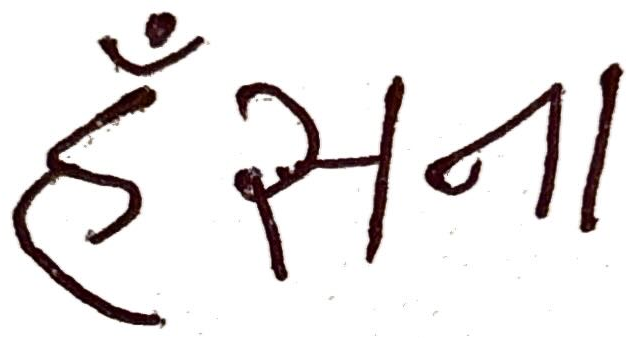 हँसना